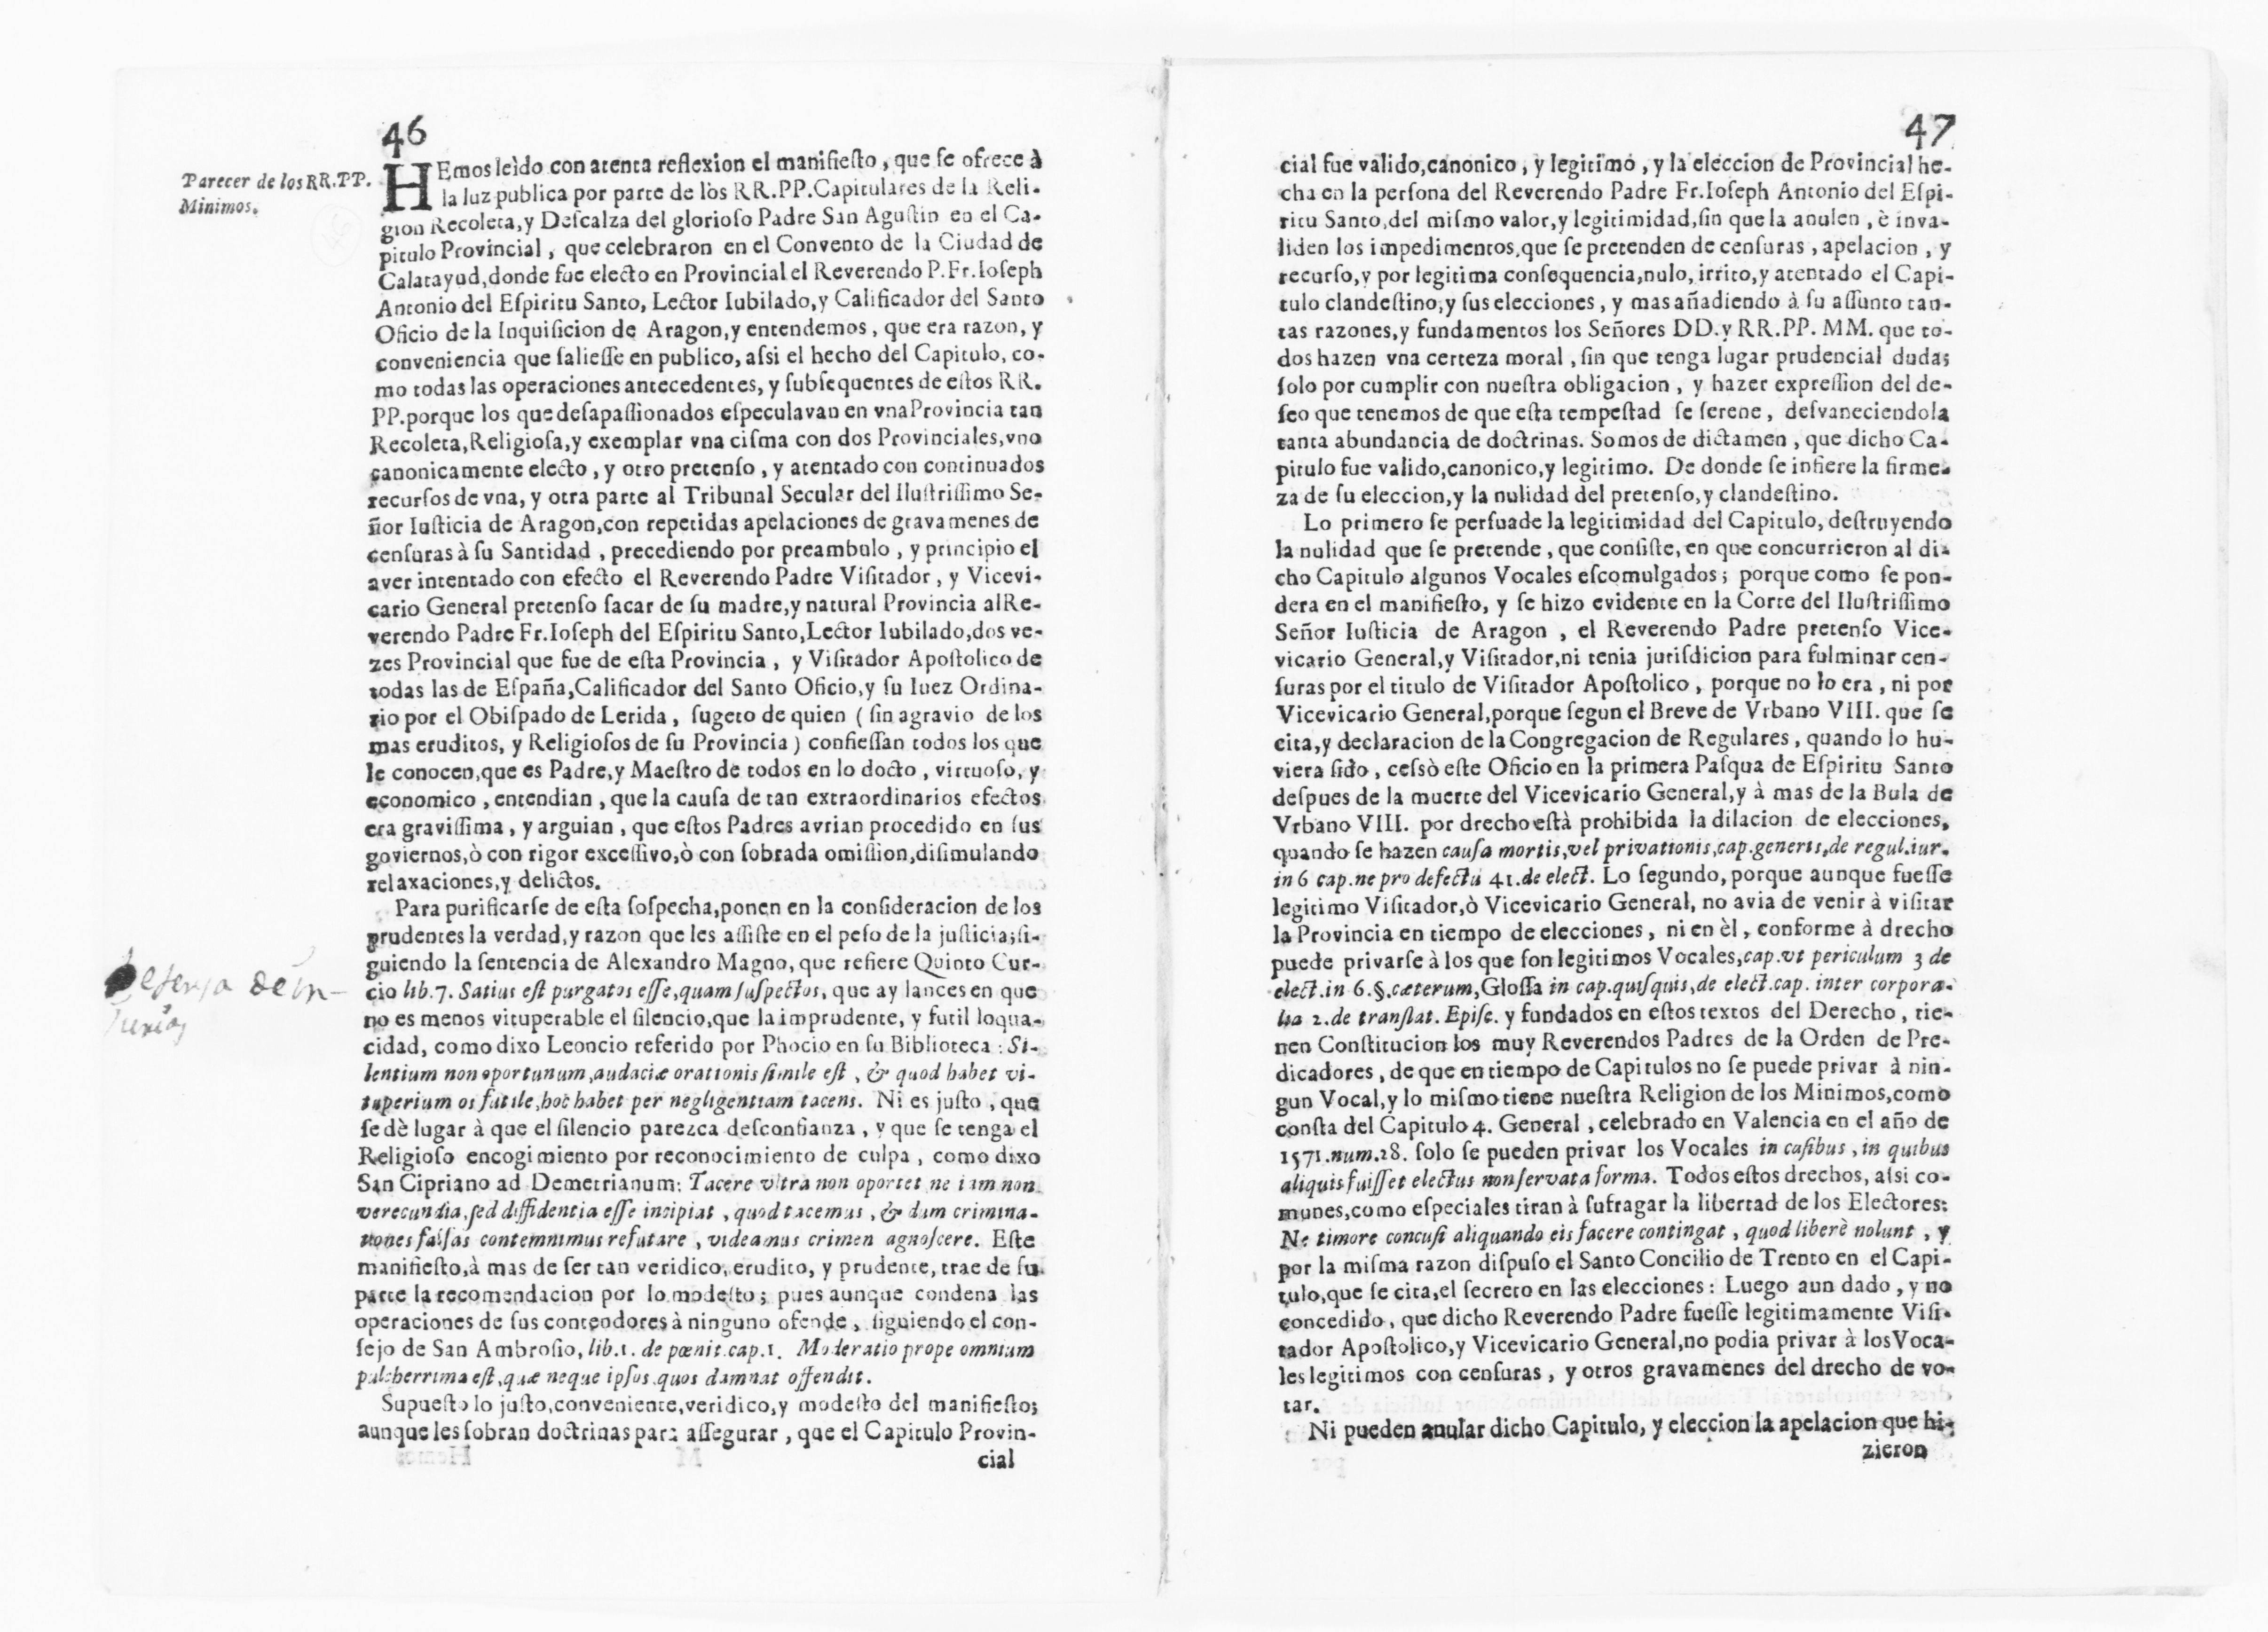 46
Parecer de los RR.PP.
Minimos.
HEmos leìdo con atenta reflexion el manifiesto, que se ofrece à
la luz publica por parte de los RR.PP.Capitulares de la Reli-
gion Recoleta,y Descalza del glorioso Padre San Agustin en el Ca-
pitulo Provincial, que celebraron en el Convento de la Ciudad de
Calatayud,donde fue electo en Provincial el Reverendo P.Fr.Ioseph
Antonio del Espiritu Santo, Lector Iubilado,y Calificador del Santo
Oficio de la Inquisicion de Aragon,y entendemos, que era razon, y
conveniencia que saliesse en publico, assi el hecho del Capitulo, co-
mo todas las operaciones antecedentes, y subsequentes de estos RR.
PP.porque los que desapassionados especulavan en vna Provincia tan
Recoleta,Religiosa,y exemplar vna cisma con dos Provinciales,vno
canonicamente electo, y otro pretenso, y atentado con continuados
recursos de vna, y otra parte al Tribunal Secular del Ilustrissimo Se-
ñor Iusticia de Aragon,con repetidas apelaciones de gravamenes de
censuras à su Santidad, precediendo por preambulo, y principio el
aver intentado con efecto el Reverendo Padre Visitador, y Vicevi-
cario General pretenso sacar de su madre,y natural Provincia al Re-
verendo Padre Fr.Ioseph del Espiritu Santo,Lector Iubilado,dos ve-
zes Provincial que fue de esta Provincia, y Visitador Apostolico de
todas las de España,Calificador del Santo Oficio,y su Iuez Ordina-
rio por el Obispado de Lerida, sugeto de quien ( sin agravio de los
mas eruditos, y Religiosos de su Provincia ) confiessan todos los que
le conocen,que es Padre,y Maestro de todos en lo docto, virtuoso, y
economico, entendian, que la causa de tan extraordinarios efectos
era gravissima, y arguian, que estos Padres avrian procedido en sus
goviernos,ò con rigor excessivo,ò con sobrada omission,disimulando
relaxaciones,y delictos.
Para purificarse de esta sospecha,ponen en la consideracion de los
prudentes la verdad,y razon que les assiste en el peso de la justicia;si-
guiendo la sentencia de Alexandro Magno, que refiere Quinto Cur-
cio lib.7. Satius est purgatos esse,quam suspectos, que ay lances en que
no es menos vituperable el silencio,que la imprudente, y futil loqua-
cidad, como dixo Leoncio referido por Phocio en su Biblioteca : Si-
lentium non oportunum,audaciæ orationis simile est, & quod habet vi-
tuperium os futile,hoc habet per negligentiam tacens. Ni es justo, que
se dè lugar à que el silencio parezca desconfianza, y que se tenga el
Religioso encogimiento por reconocimiento de culpa, como dixo
San Cipriano ad Demetrianum: Tacere vltra non oportet ne iam non
verecundia,sed diffidentia esse incipiat, quod tacemus, & dum crimina-
tiones falsas contemnimus refutare, videamus crimen agnoscere. Este
manifiesto,à mas de ser tan veridico, erudito, y prudente, trae de su
parte la recomendacion por lo modesto; pues aunque condena las
operaciones de sus contendores à ninguno ofende, siguiendo el con-
sejo de San Ambrosio, lib.1. de pœnit.cap.1. Moderatio prope omnium
pulcherrima est,quæ neque ipsos quos damnat offendit.
Supuesto lo justo,conveniente,veridico,y modesto del manifiesto;
aunque les sobran doctrinas para assegurar, que el Capitulo Provin-
cial
Defensa de in-
jurias
47
cial fue valido,canonico, y legitimo, y la eleccion de Provincial he-
cha en la persona del Reverendo Padre Fr.Ioseph Antonio del Espi-
ritu Santo,del mismo valor,y legitimidad,sin que la anulen, è inva-
liden los impedimentos,que se pretenden de censuras, apelacion, y
recurso,y por legitima consequencia,nulo, irrito,y atentado el Capi-
tulo clandestino,y sus elecciones, y mas añadiendo à su assunto tan-
tas razones,y fundamentos los Señores DD.y RR.PP. MM. que to-
dos hazen vna certeza moral, sin que tenga lugar prudencial duda;
solo por cumplir con nuestra obligacion, y hazer expression del de-
seo que tenemos de que esta tempestad se serene, desvaneciendola
tanta abundancia de doctrinas. Somos de dictamen, que dicho Ca-
pitulo fue valido,canonico,y legitimo. De donde se infiere la firme-
za de su eleccion,y la nulidad del pretenso,y clandestino.
Lo primero se persuade la legitimidad del Capitulo, destruyendo
la nulidad que se pretende, que consiste, en que concurrieron al di-
cho Capitulo algunos Vocales escomulgados; porque como se pon-
dera en el manifiesto, y se hizo evidente en la Corte del Ilustrissimo
Señor Iusticia de Aragon, el Reverendo Padre pretenso Vice-
vicario General,y Visitador,ni tenia jurisdicion para fulminar cen-
suras por el titulo de Visitador Apostolico, porque no lo era, ni por
Vicevicario General,porque segun el Breve de Vrbano VIII. que se
cita,y declaracion de la Congregacion de Regulares, quando lo hu-
viera sido, cessò este Oficio en la primera Pasqua de Espiritu Santo
despues de la muerte del Vicevicario General,y à mas de la Bula de
Vrbano VIII. por drecho està prohibida la dilacion de elecciones,
quando se hazen causa mortis,vel privationis,cap.generis,de regul.iur.
in 6 cap.ne pro defectu 41.de elect. Lo segundo, porque aunque fuesse
legitimo Visitador,ò Vicevicario General, no avia de venir à visitar
la Provincia en tiempo de elecciones, ni en èl, conforme à drecho
puede privarse à los que son legitimos Vocales,cap.vt periculum 3 de
elect.in 6.§.cæterum,Glossa in cap.quisquis,de elect.cap. inter corpora-
lia 2.de translat. Episc. y fundados en estos textos del Derecho, tie-
nen Constitucion los muy Reverendos Padres de la Orden de Pre-
dicadores, de que en tiempo de Capitulos no se puede privar à nin-
gun Vocal,y lo mismo tiene nuestra Religion de los Minimos,como
consta del Capitulo 4. General, celebrado en Valencia en el año de
1571.num.28. solo se pueden privar los Vocales in casibus, in quibus
aliquis fuisset electus non servata forma. Todos estos drechos, assi co-
munes,como especiales tiran à sufragar la libertad de los Electores:
Ne timore concusi aliquando eis facere contingat, quod liberè nolunt, y
por la misma razon dispuso el Santo Concilio de Trento en el Capi-
tulo,que se cita,el secreto en las elecciones: Luego aun dado, y no
concedido, que dicho Reverendo Padre fuesse legitimamente Visi-
tador Apostolico,y Vicevicario General,no podia privar à los Voca-
les legitimos con censuras, y otros gravamenes del drecho de vo-
tar.
Ni pueden anular dicho Capitulo, y eleccion la apelacion que hi-
zieron